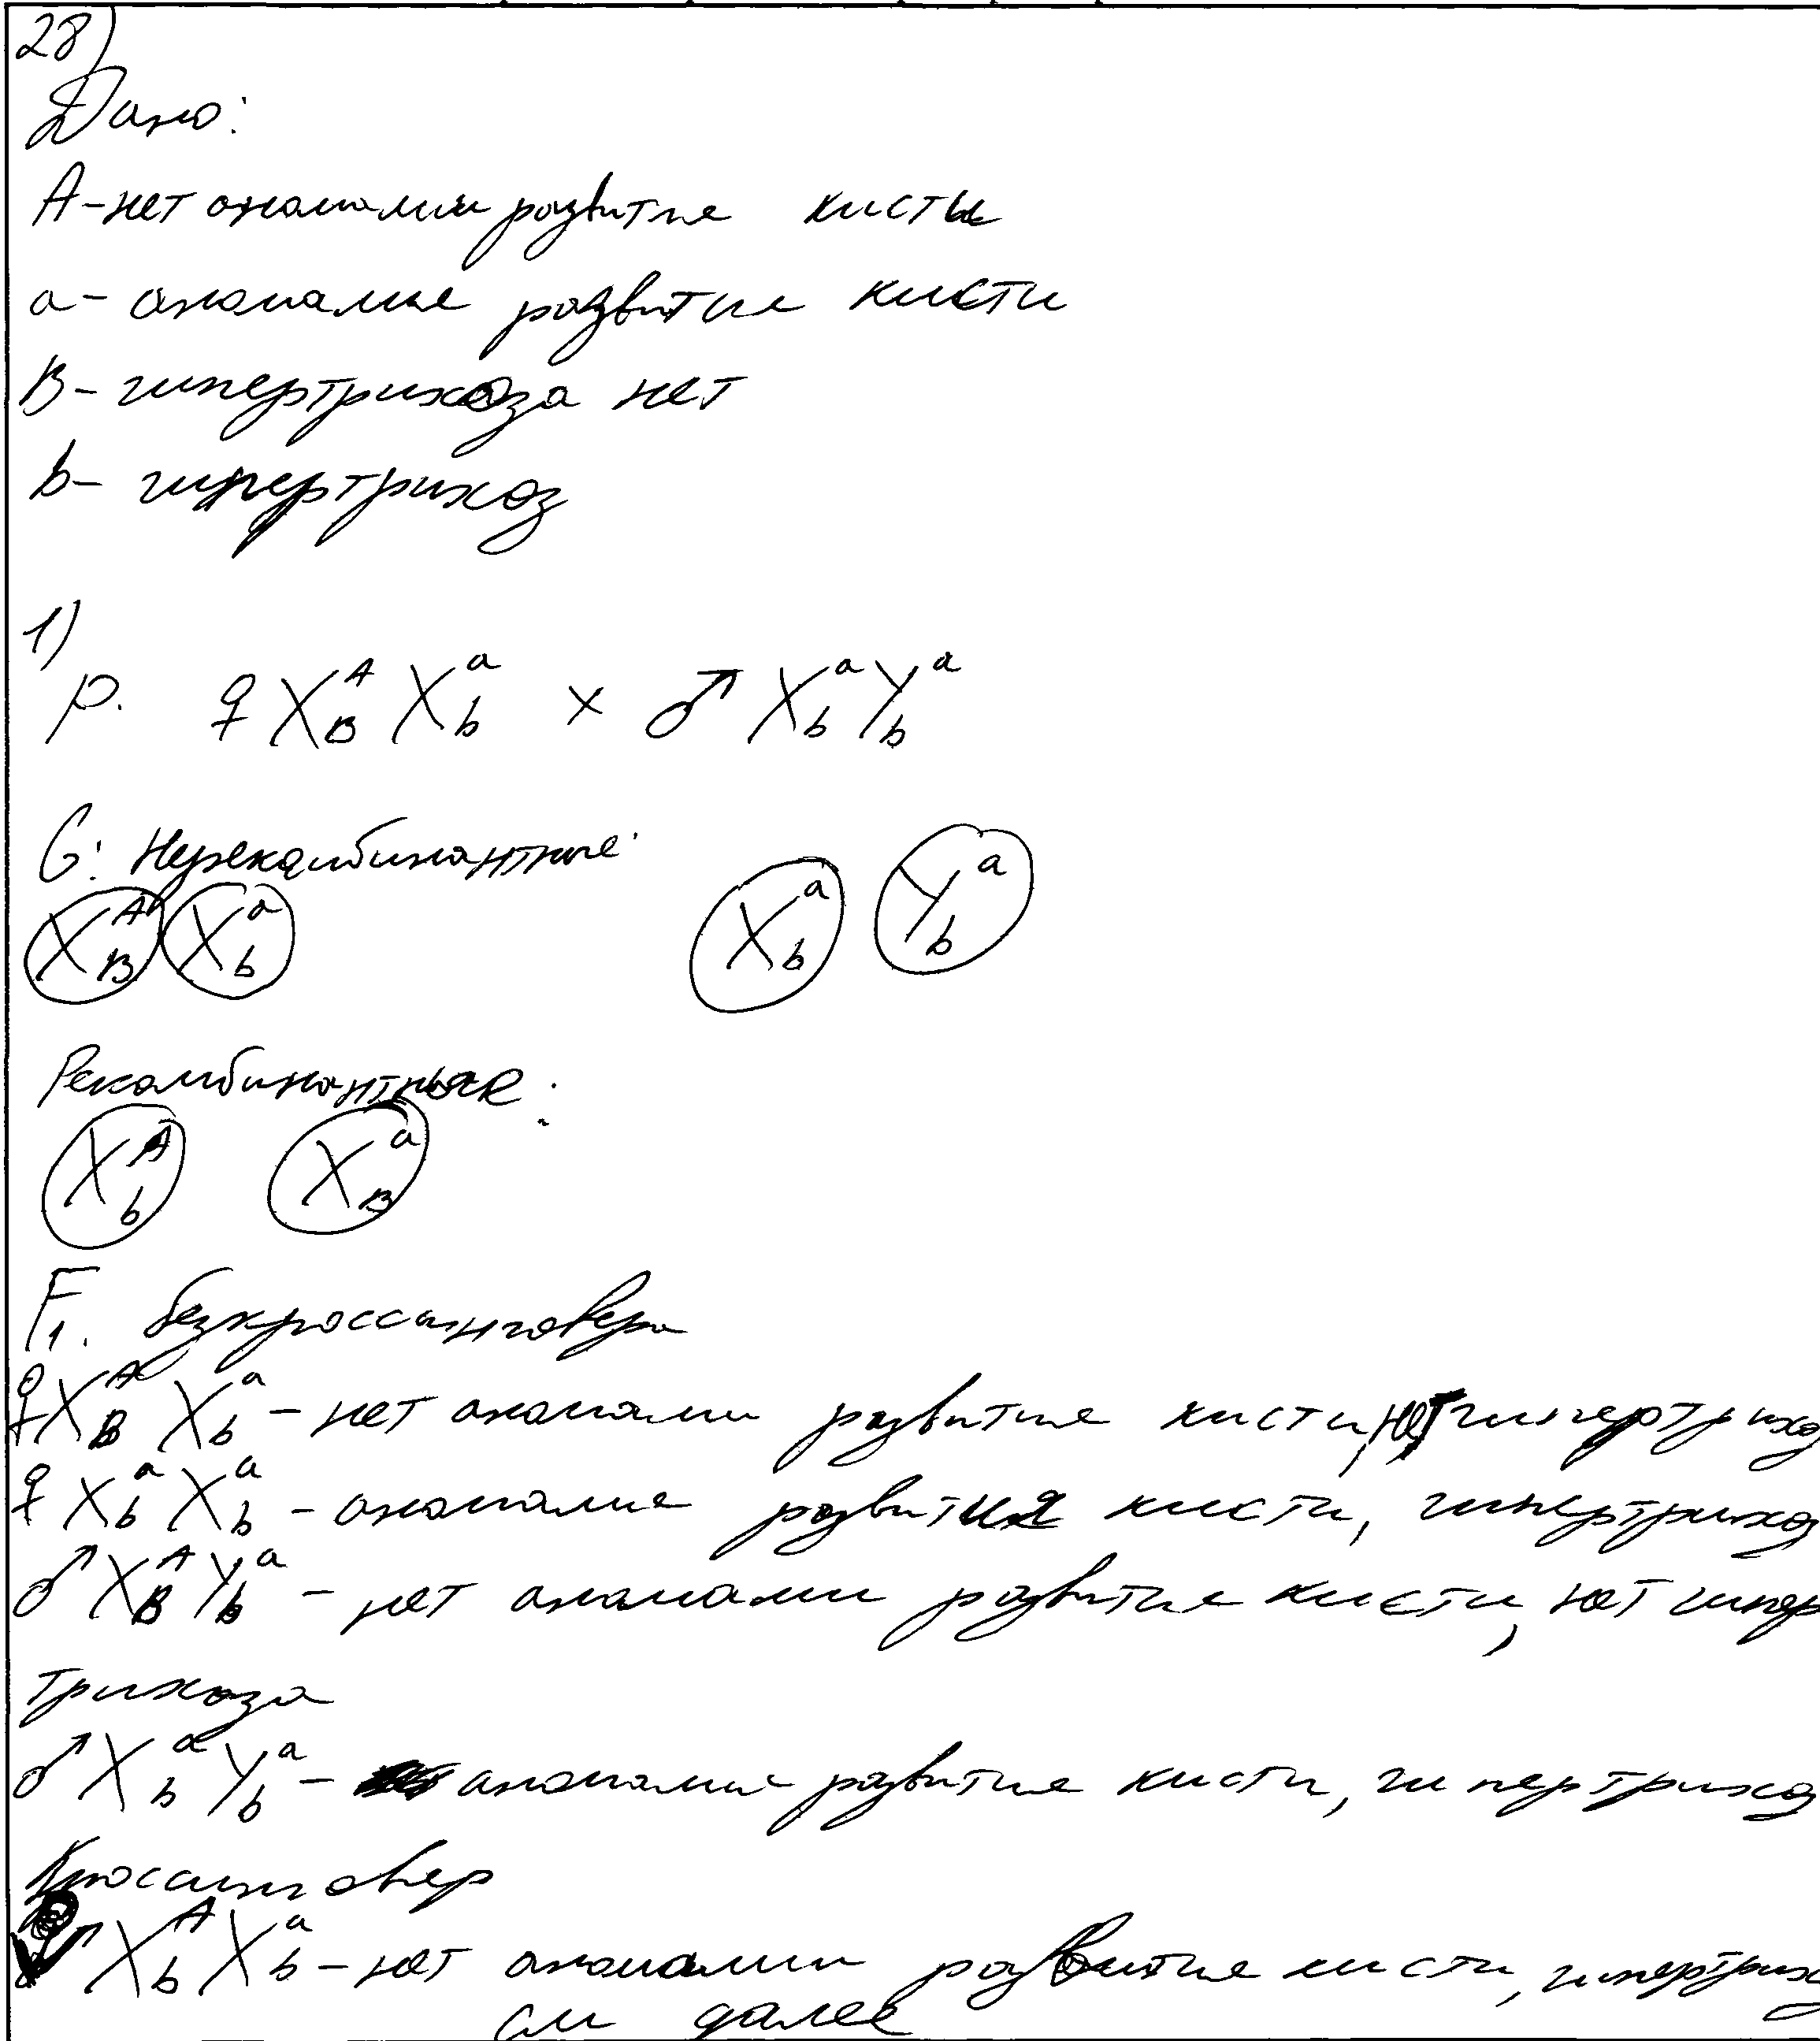 28)
Дано:
A - нет аномалии развитие кисты
a - аномалие развитие кисти
B - гипертрихоза нет
b - гипертрихоз
1)
P. ♀ X^A_B X^a_b × ♂ X^a_b Y^a_b
G: Нерекомбинантные:
X^A_B X^a_b X^a_b Y^a_b
Рекомбинантные:
X^A_b X^a_B
F1. без кроссинговера
♀ X^A_B X^a_b - нет аномалии развитие кисти, нет гипертрихоз
♀ X^a_b X^a_b - аномалие развития кисти, гипертрихоз
♂ X^A_B Y^a_b - нет аномалии развитие кисти, нет гипер
трихоза
♂ X^a_b Y^a_b - аномалие развитие кисти, гипертрихоз
Кроссинговер
♀ X^A_b X^a_b - нет аномалии развитие кисти, гипертрих
см далее